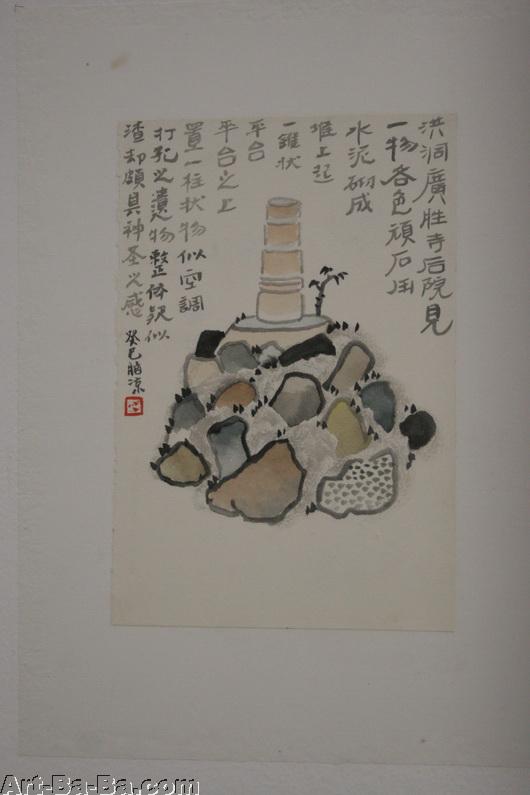 洪洞廣胜寺后院見
一物各色頑石用
水泥砌成
堆上起
一錐状
平台
平台之上
置一柱状物似空調
打孔之遺物整体疑似
渣却頗具神圣之感
癸巳腊凉
Art-Ba-Ba.com